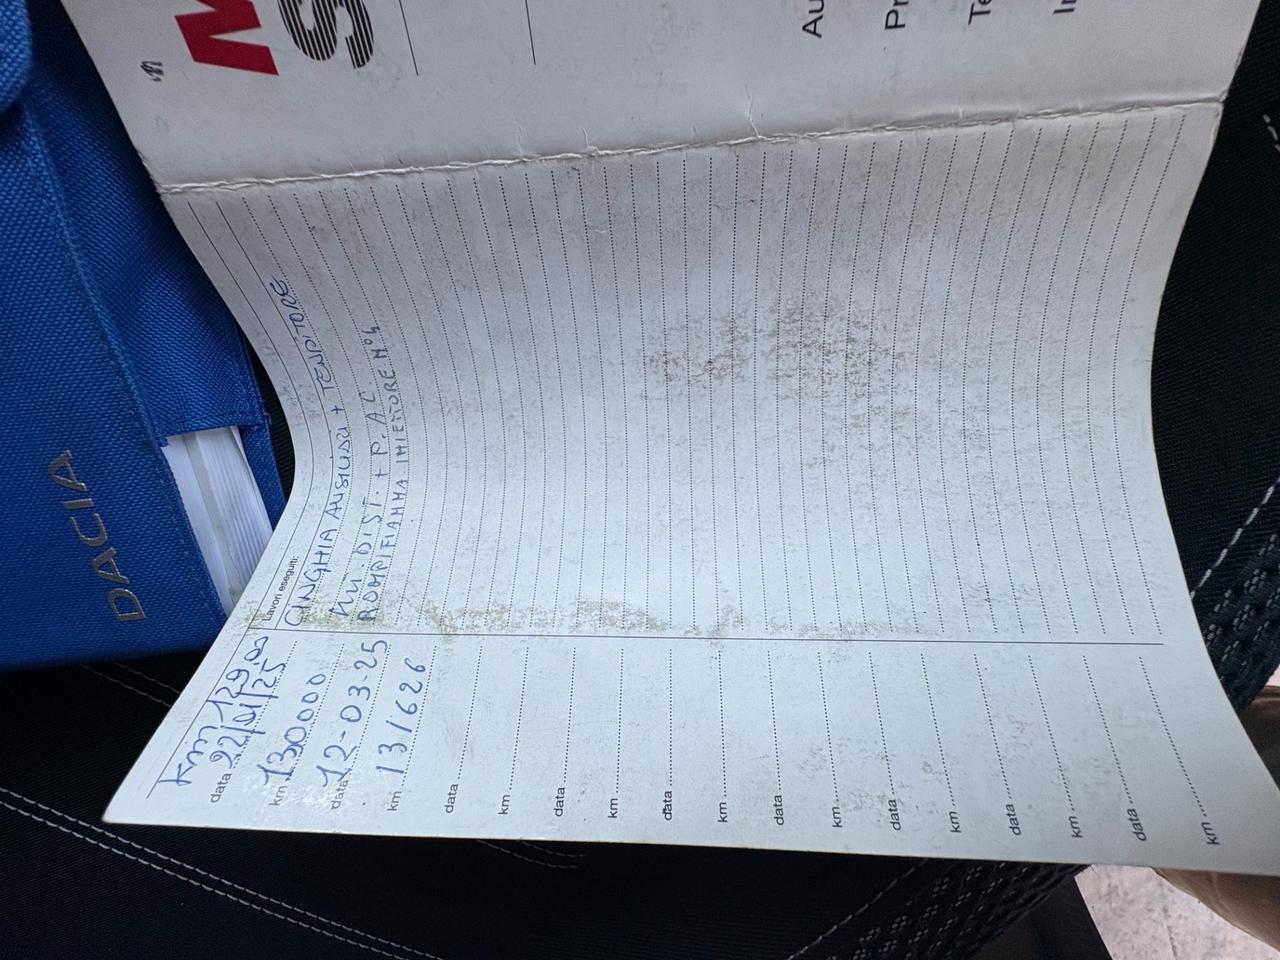 DACIA
M
S
Au
Pr
Te
km 129.00
data 22/01/25
Lavori eseguiti:
km 130000
CINGHIA AUSILIARI + TENDITORE
data 12-03-25
DIST. + P. AC.
km 131626
ROMPIFIAMMA INIETTORE N°4
data
km
data
km
data
km
data
km
data
km
data
km
data
km